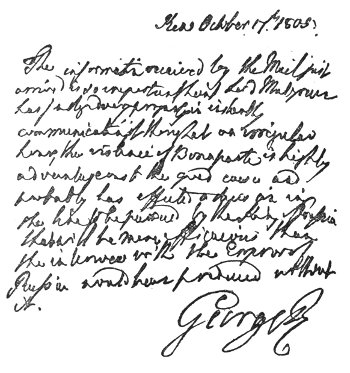 Kew October 17th 1805.
The information received by the Mail just
arrived is so important that Lord Mulgrave
has judged very proper in instantly
communicating it though at an irregular
hour, the violence of Bonaparte is highly
advantageous to the good cause and
probably has effected a decision in
the line to be pursued by the King of Prussia
that will be more efficacious than
the interview with the Emperor of
Russia would have produced without
it.
George R